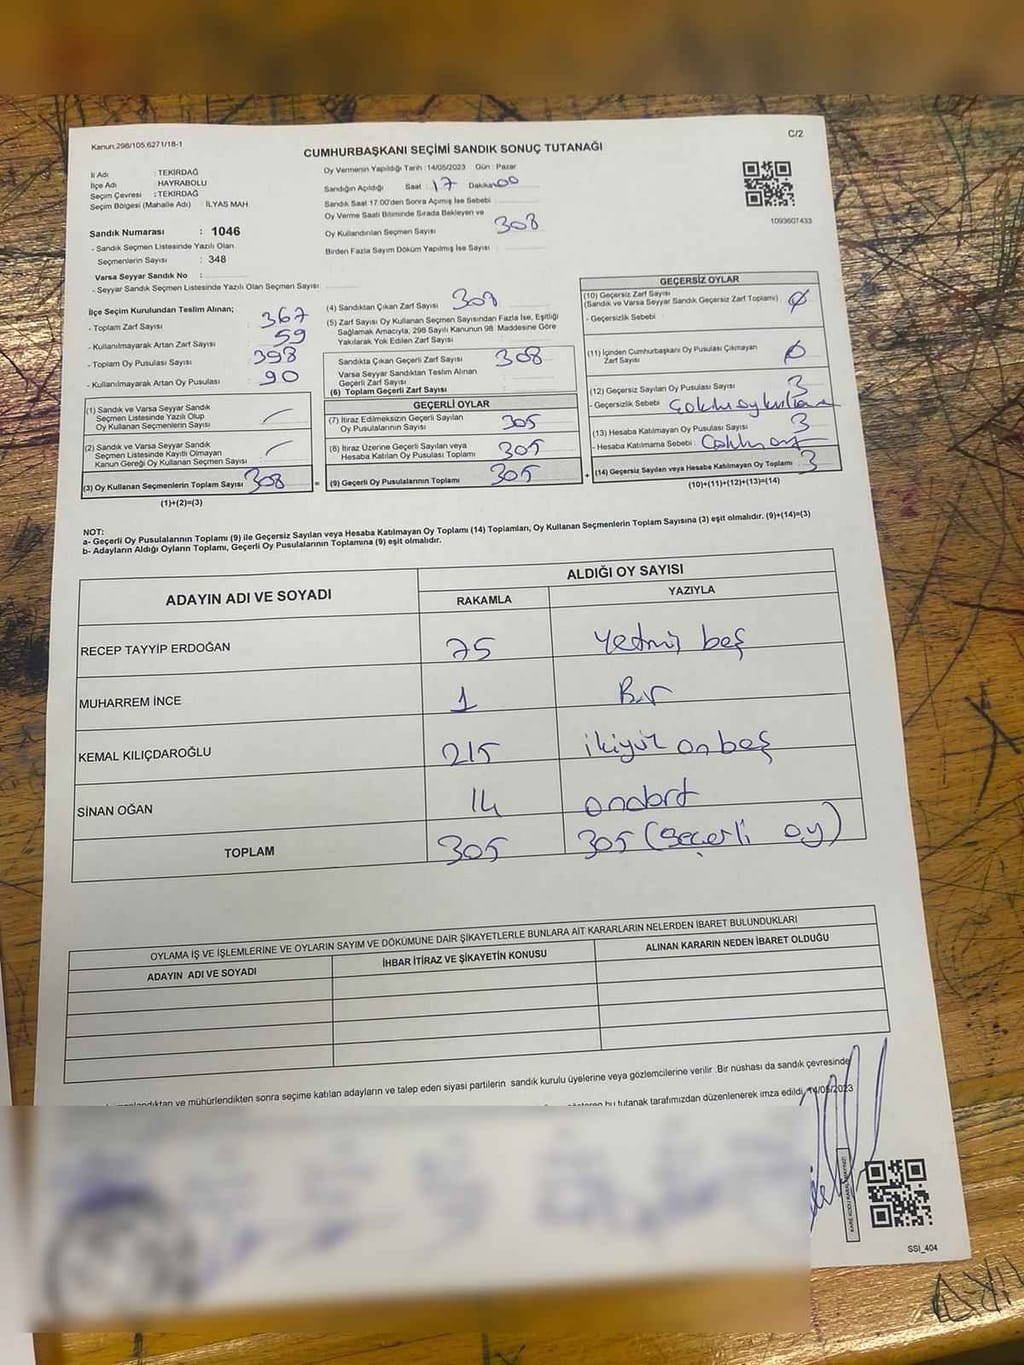 Kanun.298/105,6271/18-1
C/2
CUMHURBAŞKANI SEÇİMİ SANDIK SONUÇ TUTANAĞI
İl Adı : TEKİRDAĞ
İlçe Adı HAYRABOLU
Seçim Çevresi : TEKİRDAĞ
Seçim Bölgesi (Mahalle Adı) : İLYAS MAH.
Sandık Numarası : 1046
- Sandık Seçmen Listesinde Yazılı Olan
Seçmenlerin Sayısı : 348
Varsa Seyyar Sandık No :
- Seyyar Sandık Seçmen Listesinde Yazılı Olan Seçmen Sayısı :
Oy Vermenin Yapıldığı Tarih : 14/05/2023 Gün : Pazar
Sandığın Açıldığı Saat : 17 Dakika : 00
Sandık Saat 17.00'den Sonra Açımış İse Sebebi :
Oy Verme Saati Bitiminde Sırada Bekleyen ve
Oy Kullandırılan Seçmen Sayısı : 308
Birden Fazla Sayım Döküm Yapılmış İse Sayısı :
1093607433
İlçe Seçim Kurulundan Teslim Alınan;
- Toplam Zarf Sayısı : 367
- Kullanılmayarak Artan Zarf Sayısı : 59
- Toplam Oy Pusulası Sayısı : 398
- Kullanılmayarak Artan Oy Pusulası : 90
(1) Sandık ve Varsa Seyyar Sandık
Seçmen Listesinde Yazılı Olup
Oy Kullanan Seçmenlerin Sayısı :
(2) Sandık ve Varsa Seyyar Sandık
Seçmen Listesinde Kayıtlı Olmayan
Kanun Gereği Oy Kullanan Seçmen Sayısı :
(3) Oy Kullanan Seçmenlerin Toplam Sayısı 308
(1)+(2)=(3)
(4) Sandıktan Çıkan Zarf Sayısı : 308
(5) Zarf Sayısı Oy Kullanan Seçmen Sayısından Fazla İse, Eşitliği
Sağlamak Amacıyla, 298 Sayılı Kanunun 98. Maddesine Göre
Yakılarak Yok Edilen Zarf Sayısı :
Sandıkta Çıkan Geçerli Zarf Sayısı : 308
Varsa Seyyar Sandıktan Teslim Alınan
Geçerli Zarf Sayısı :
(6) Toplam Geçerli Zarf Sayısı :
GEÇERLİ OYLAR
(7) İtiraz Edilmeksizin Geçerli Sayılan
Oy Pusulasının Sayısı : 305
(8) İtiraz Üzerine Geçerli Sayılan veya
Hesaba Katılan Oy Pusulası Toplamı : 305
= (9) Geçerli Oy Pusulalarının Toplamı 305
GEÇERSİZ OYLAR
(10) Geçersiz Zarf Sayısı
(Sandık ve Varsa Seyyar Sandık Geçersiz Zarf Toplamı) : 0
- Geçersizlik Sebebi :
(11) İçinden Cumhurbaşkanı Oy Pusulası Çıkmayan
Zarf Sayısı : 0
(12) Geçersiz Sayılan Oy Pusulası Sayısı : 3
- Geçersizlik Sebebi :
(13) Hesaba Katılmayan Oy Pusulası Sayısı : 3
- Hesaba Katılmama Sebebi :
+ (14) Geçersiz Sayılan veya Hesaba Katılmayan Oy Toplamı 3
(10)+(11)+(12)+(13)=(14)
NOT:
a- Geçerli Oy Pusulalarının Toplamı (9) ile Geçersiz Sayılan veya Hesaba Katılmayan Oy Toplamı (14) Toplamları, Oy Kullanan Seçmenlerin Toplam Sayısına (3) eşit olmalıdır. (9)+(14)=(3)
b- Adayların Aldığı Oyların Toplamı, Geçerli Oy Pusulalarının Toplamına (9) eşit olmalıdır.
ADAYIN ADI VE SOYADI
ALDIĞI OY SAYISI
RAKAMLA YAZIYLA
RECEP TAYYİP ERDOĞAN 75 Yetmiş beş
MUHARREM İNCE 1 Bir
KEMAL KILIÇDAROĞLU 215 ikiyüz onbeş
SİNAN OĞAN 14 ondört
TOPLAM 305 305 (geçerli oy)
OYLAMA İŞ VE İŞLEMLERİNE VE OYLARIN SAYIM VE DÖKÜMÜNE DAİR ŞİKAYETLERLE BUNLARA AİT KARARLARIN NELERDEN İBARET BULUNDUKLARI
ADAYIN ADI VE SOYADI İHBAR İTİRAZ VE ŞİKAYETİN KONUSU ALINAN KARARIN NEDEN İBARET OLDUĞU
mühürlendikten sonra seçime katılan adayların ve talep eden siyasi partilerin sandık kurulu üyelerine veya gözlemcilerine verilir .Bir nüshası da sandık çevresinde
bu tutanak tarafımızdan düzenlenerek imza edildi. 14/05/2023
SSI_404